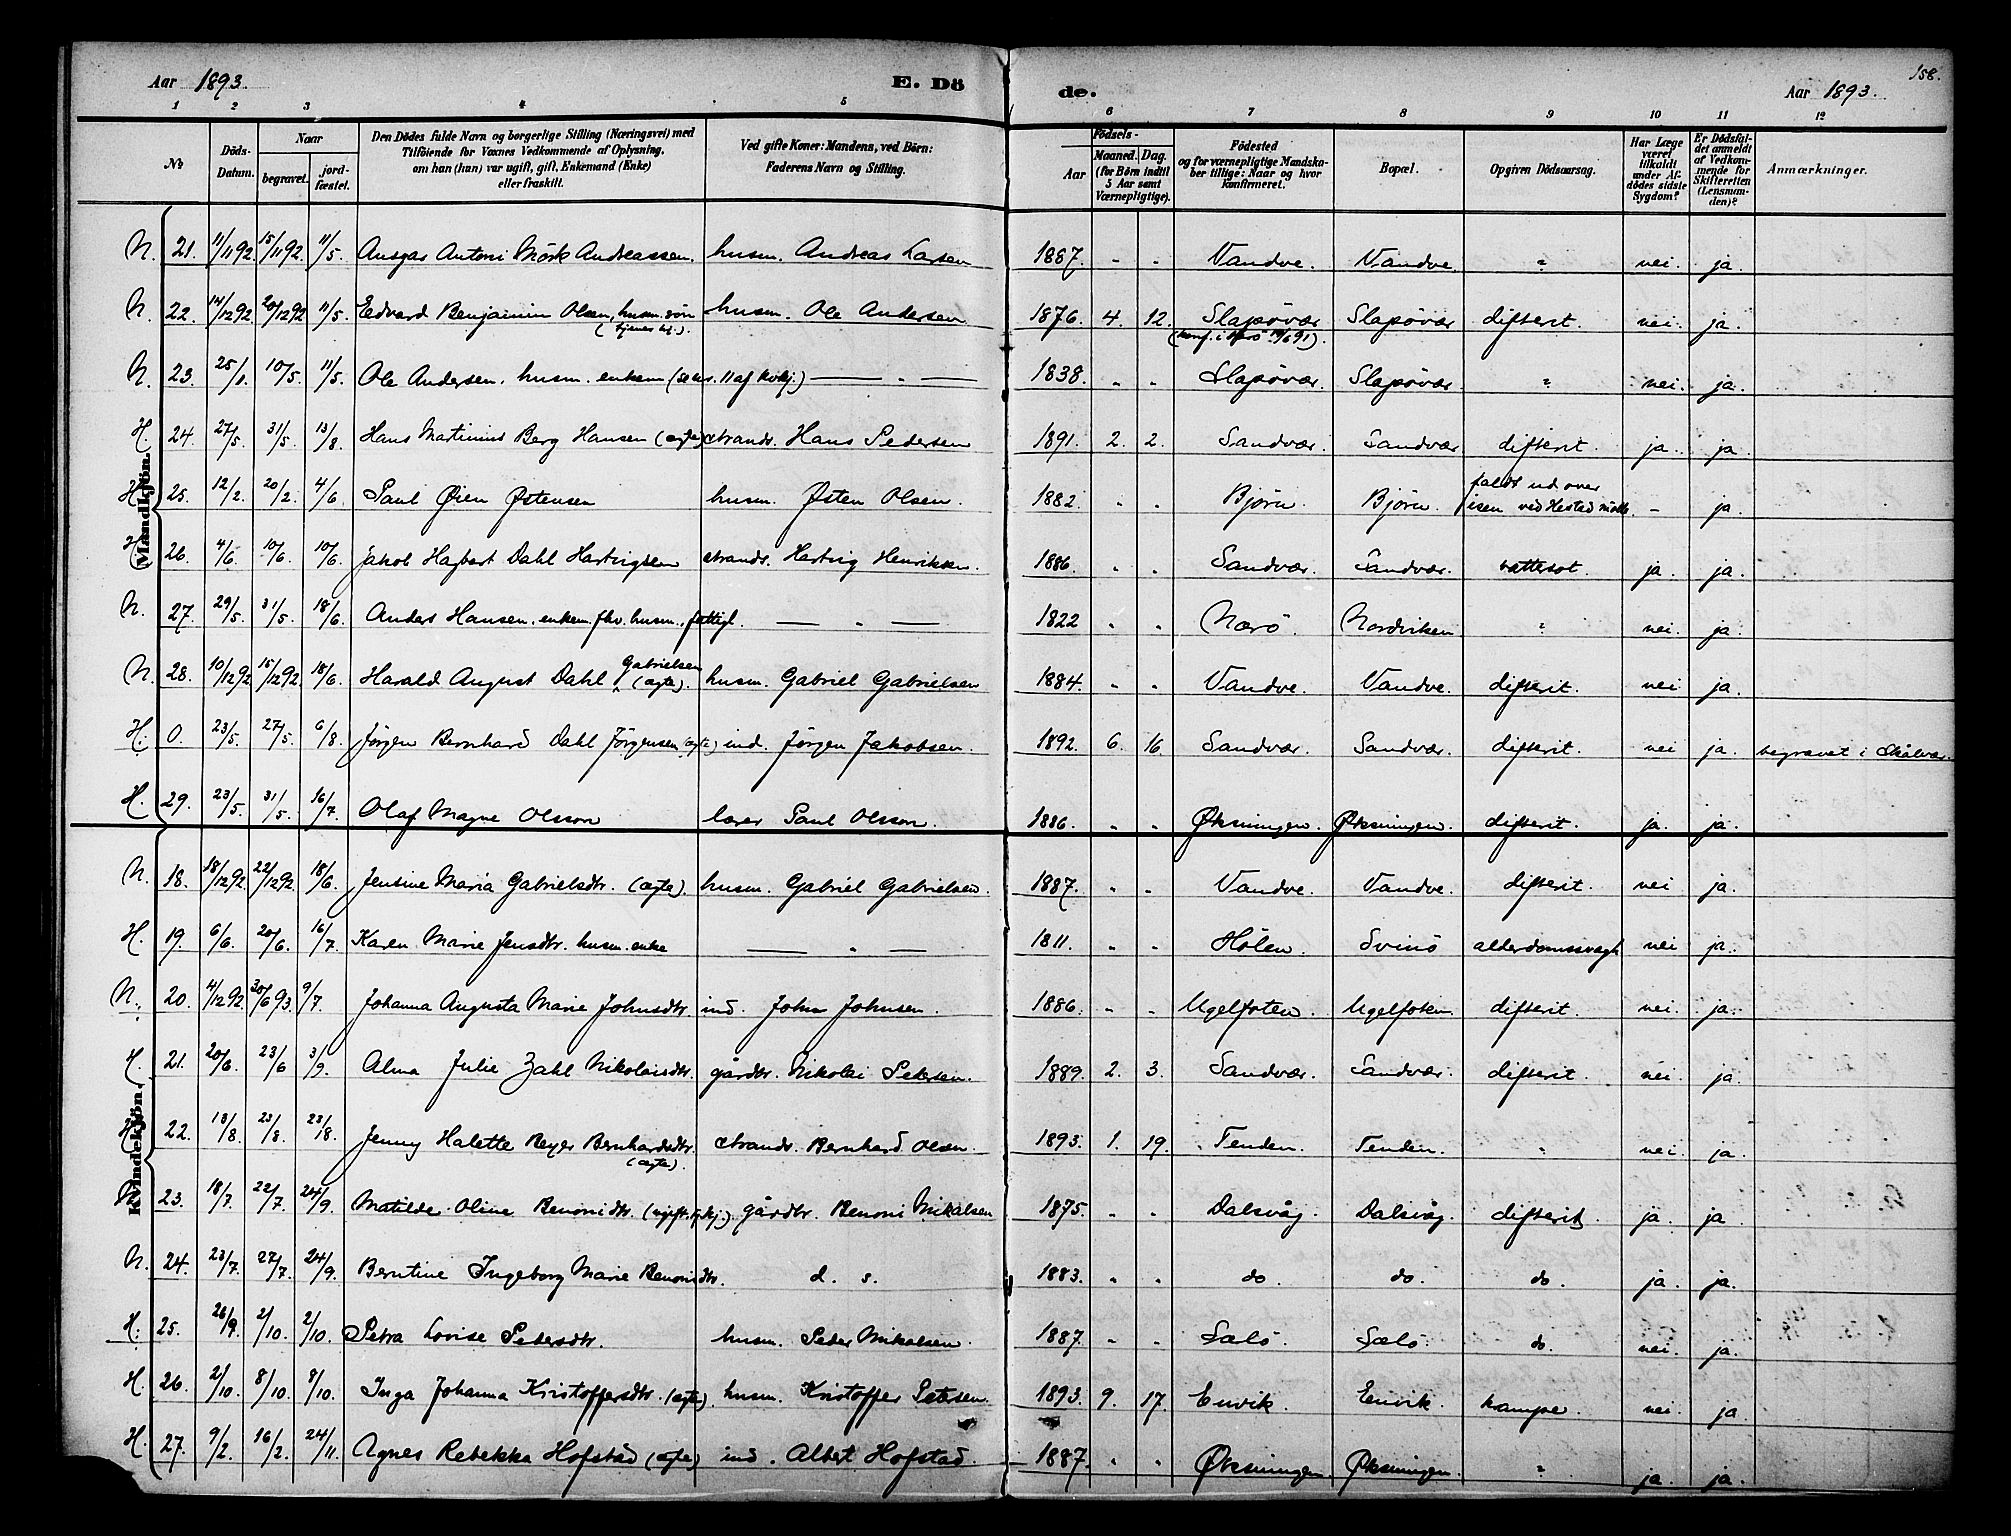 158.
Aar 1893. E. Dö de. Aar 1893.
1 2 3 4 5 6 7 8 9 10 11 12
No
Döds-Datum.
Naar
begravet.
jord-fæstet.
Den Dödes fulde Navn og borgerlige Stilling (Næringsvei) med
Tilföiende for Voxnes Vedkommende af Oplysning,
om han (hun) var ugift, gift, Enkemand (Enke)
eller fraskilt.
Ved gifte Koner: Mandens, ved Börn:
Faderens Navn og Stilling.
Födsels-
Aar
Maaned. Dag.
(for Börn indtil
5 Aar samt
Værnepligtige).
Födested
og for værnepligtige Mandska-
ber tillige: Naar og hvor
konfirmeret.
Bopæl.
Opgiven Dödsaarsag.
Har Læge
været
tilkaldt
under Af-
dödes sidste
Sygdom?
Er Dödsfal-
det anmeldt
af Vedkom-
mende for
Skifteretten
(Lensman-
den)?
Anmærkninger.
Mandkjön.
N. 21. 11/11 92. 15/11 92. 11/5. Ansgar Antoni Mörk Andreassen. husm. Andreas Larsen 1887. " " Vandve. Vandve. " nei. ja.
N. 22. 14/12 92. 20/12 92 11/5. Edvard Benjamin Olsen, husm. sön husm. Ole Andersen 1876. 4. 12. Slapövær Slapövær difterit. nei. ja.
(konf. i Herö 14/6 91).
N. 23. 25/1. 10/5. 11/5. Ole Andersen. husm. enkem 1838. " " Slapövær. Slapövær " nei. ja.
H. 24. 27/5. 31/5. 13/8. Hans Martinius Berg Hansen (ægte) strands. Hans Pedersen 1891. 2. 2. Sandvær. Sandvær difterit. ja. ja
H. 25. 12/2. 20/2. 4/6 Paul Øien Østensen husm. Østen Olsen. 1882. " " Bjørn. Bjørn. faldt ud over
isen ved Hestad - ja.
H. 26. 4/6. 10/6. 10/6. Jakob Hagbart Dahl Hartvigsen strands. Hartvig Henriksen. 1886. " " Sandvær. Sandvær. vattersot. ja. ja.
N. 27. 29/5. 31/5. 18/6. Anders Hansen. enkem. fhv. husm., fattigl. — " — 1822 " " Nærö. Nordviken " nei. ja.
N. 28. 10/12 92 15/12 92. 18/6. Harald August Dahl Gabrielsen (ægte). husm. Gabriel Gabrielsen 1884. " " Vandve. Vandve. difterit. nei ja.
H. 0. 23/5. 27/5. 6/8. Jörgen Bernhard Dahl Jörgensen (ægte) ind. Jörgen Jakobsen. 1892. 6. 16 Sandvær. Sandvær. difterit. nei ja. begravet i Skålvær.
H. 29. 23/5. 31/5. 16/7. Olaf Magne Olsson lærer Paul Olsson. 1886. " " Øksningen. Øksningen. difterit. ja. ja.
Kvindekjön.
N. 18. 18/12 92. 22/12 92. 18/6. Jensine Maria Gabrielsdtr. (ægte). husm. Gabriel Gabrielsen. 1887. " " Vandve. Vandve. difterit. nei ja.
H. 19. 6/6. 20/6. 16/7. Karen Marie Jensdtr. husm. enke — " — 1811. " " Hölen. Svinö alderdomssvagh nei ja.
N. 20. 4/12 92. 30/6 93. 9/7. Johanna Augusta Marie Johnsdtr ind. John Johnsen. 1886. " " Ugelfoten. Ugelfoten difterit. nei. ja.
H. 21. 20/6. 23/6 3/9. Alma Julie Zahl Nikolaisdtr. gårdbr. Nikolai Petersen. 1889. 2. 3. Sandvær. Sandvær. difterit. nei. ja.
H. 22. 13/8. 23/8. 23/8. Jenny Halette Reyer Bernhardsdtr. strands. Bernhard Olsen. 1893. 1. 19. Tenden. Tenden. " nei. ja.
(ægte).
N. 23. 18/7. 22/7. 24/9. Matilde Oline Benonidtr. gårdbr. Benoni Mikalsen 1875. " " Dalsvåg. Dalsvåg. difterit. ja. ja
N. 24. 23/7. 27/7. 24/9. Berntine Ingeborg Marie Benonidtr. d. s. 1883. " " do. do. do. ja. ja.
H. 25. 26/9. 2/10. 2/10. Petra Lovise Pedersdtr. husm. Peder Mikalsen 1887. " " Sælö. Sælö. do. nei. ja.
H. 26. 2/10. 8/10. 8/10. Inga Johanna Kristoffersdtr. (ægte). husm. Kristoffer Petersen. 1893. 9. 17. Envik. Envik. krampe. nei. ja
H. 27. 9/2. 16/2. 24/11. Agnes Rebekka Hofstad (ægte) ind. Albert Hofstad. 1887. " " Øksningen. Øksningen. " ja. ja.